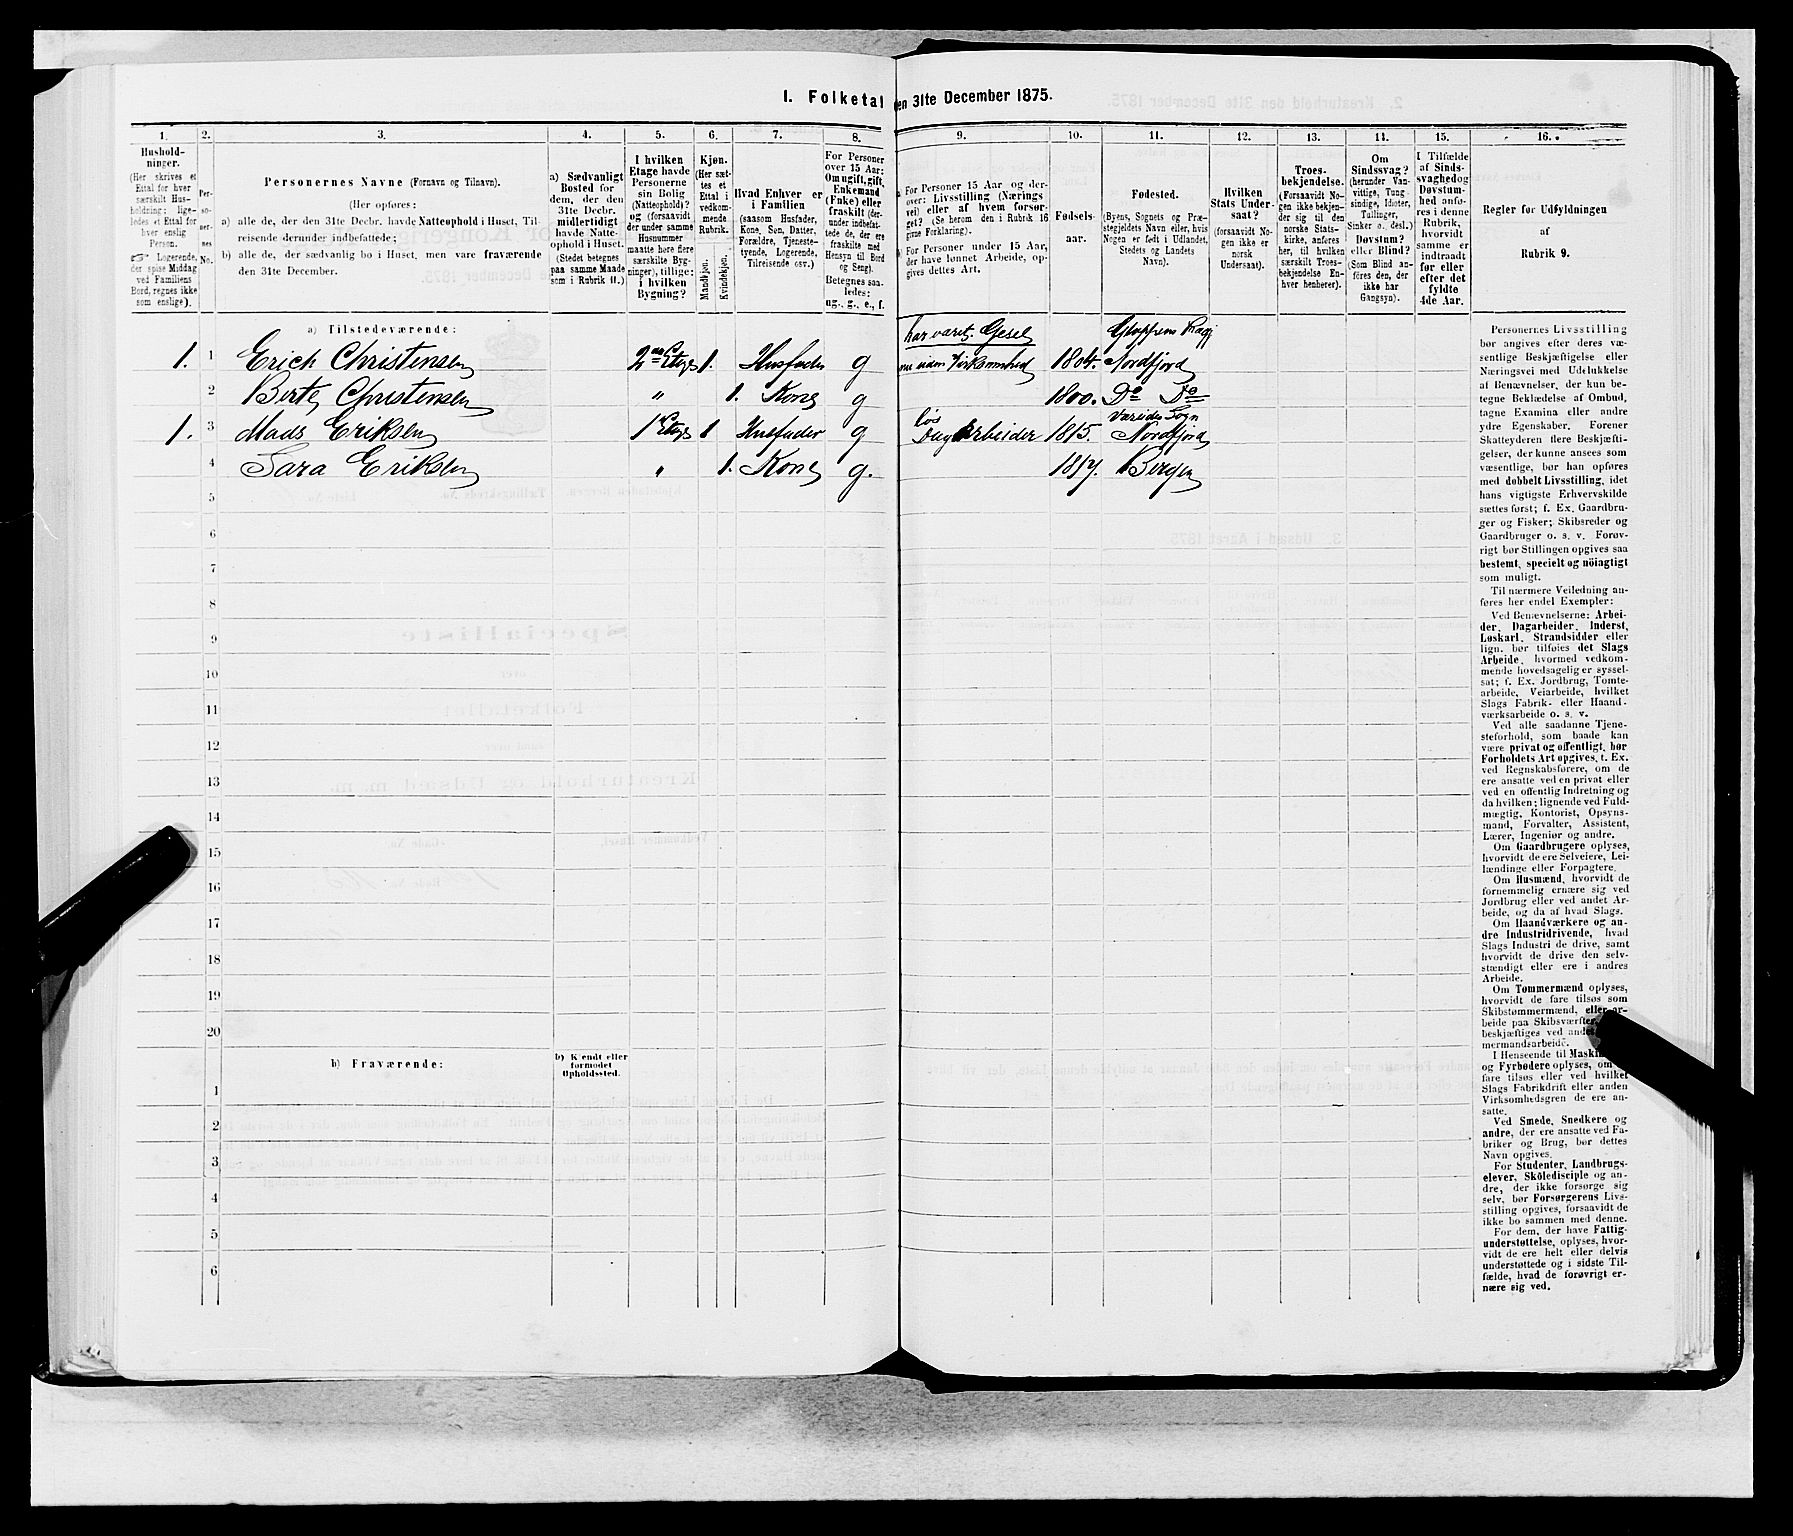 I. Folketal den 31te December 1875.
1. 2. 3. 4. 5. 6. 7. 8. 9. 10. 11. 12. 13. 14. 15. 16.
Hushold-
ninger.
(Her skrives et
Ettal for hver
særskilt Hus-
holdning; lige-
ledes et Ettal for
hver enslig
Person.
☞ Logerende,
der spise Middag
ved Familiens
Bord, regnes ikke
som enslige).
Per-
so-
ner-
nes
No.
Personernes Navne (Fornavn og Tilnavn).
(Her opføres:
a) alle de, der den 31te Decbr. havde Natteophold i Huset, Til-
reisende derunder indbefattede;
b) alle de, der sædvanlig bo i Huset, men vare fraværende
den 31te December.
a) Sædvanligt
Bosted for
dem, der den
31te Decbr.
midlertidigt
havde Natte-
ophold i Huset.
(Stedet betegnes
paa samme Maade
som i Rubrik 11.)
I hvilken
Etage havde
Personerne
sin Bolig
(Natteophold)?
og (forsaavidt
der under samme
Husnummer
maatte høre flere
særskilte Byg-
ninger), tillige:
i hvilken
Bygning?
Kjøn.
(Her sæt-
tes et
Ettal i
vedkom-
mende
Rubrik.
Mandkjøn.
Kvindekjøn.
Hvad Enhver er
i Familien
(saasom Husfader,
Kone, Søn, Datter,
Forældre, Tjeneste-
tyende, Logerende,
Tilreisende osv.)
For Personer
over 15 Aar:
Om ugift, gift,
Enkemand
(Enke) eller
fraskilt (der-
under indbefat-
tede de, der ere
fraskilte med
Hensyn til Bord
og Seng).
Betegnes saa-
ledes:
ug., g., e., f.
a) For Personer 15 Aar og der-
over: Livsstilling (Nærings-
vei) eller af hvem forsør-
get? (Se herom den i Rubrik 16
givne Forklaring).
b) For Personer under 15 Aar,
der have lønnet Arbeide, op-
gives dettes Art.
Fødsels-
aar.
Fødested.
(Byens, Sognets og Præ-
stegjeldets Navn eller, hvis
Nogen er født i Udlandet,
Stedets og Landets
Navn).
Hvilken
Stats Under-
saat?
(forsaavidt No-
gen ikke er
norsk
Undersaat).
Troes-
bekjendelse.
(Forsaavidt No-
gen ikke bekjen-
der sig til den
norske Stats-
kirke, anføres
her, til hvilken
særskilt Troes-
bekjendelse En-
hver henhører).
Om
Sindssvag?
(herunder Van-
vittige, Tung-
sindige, Idioter,
Tullinger,
Sinker o. desl.)
Døvstum?
eller Blind?
(Som Blind an-
føres den, der
ikke har
Gangsyn).
I Tilfælde
af Sinds-
svaghed og
Døvstum-
hed anfø-
res i denne
Rubrik,
hvorvidt
samme er
indtraadt
før eller
efter det
fyldte
4de Aar.
Regler for Udfyldningen
af
Rubrik 9.
a) Tilstedeværende:
har været Gesel Gloppens Præg
1. 1 Erich Christensen 2den Etage 1. Husfader g nu uden Virksomhed 1804. Nordfjord
2 Berte Christensen " 1. Kone g 1800. Do Do
løs Sogn
1. 3 Mads Eriksen 1ste Etage 1 Husfader g Dagarbeider 1815. Nordfjord
4 Sara Eriksen " 1. Kone g. 1817. Bergen
5
6
7
8
9
10
11
12
13
14
15
16
17
18
19
20
b) Fraværende:
b) Kjendt eller
formodet
Opholdssted.
1
2
3
4
5
6
Personernes Livsstilling
bør angives efter deres væ-
sentlige Beskjæftigelse eller
Næringsvei med Udelukkelse
af Benævnelser, der kun be-
tegne Beklædelse af Ombud,
tagne Examina eller andre
ydre Egenskaber. Forener
Skatteyderen flere Beskjæfti-
gelser, der kunne ansees som
væsentlige, bør han opføres
med dobbelt Livsstilling, idet
hans vigtigste Erhvervskilde
sættes først; f. Ex. Gaardbru-
ger og Fisker; Skibsreder og
Gaardbruger o. s. v. Forøv-
rigt bør Stillingen opgives saa
bestemt, specielt og nöiagtigt
som muligt.
Til nærmere Veiledning an-
føres her endel Exempler:
Ved Benævnelserne: Arbei-
der, Dagarbeider, Inderst,
Løskarl, Strandsidder eller
lign. bør tilføies det Slags
Arbeide, hvormed vedkom-
mende hovedsagelig er syssel-
sat; f. Ex. Jordbrug, Tomte-
arbeide, Veiarbeide, hvilket
Slags Fabrik- eller Haand-
værksarbeide o. s. v.
Ved alle saadanne Tjene-
steforhold, som baade kan
være privat og offentligt, bør
Forholdets Art opgives, t. Ex.
ved Regnskabsførere, om de
ere ansatte ved en privat eller
ved en offentlig Indretning og
da hvilken; lignende ved Fuld-
mægtig, Kontorist, Opsyns-
mand, Forvalter, Assistent,
Lærer, Ingeniør og andre.
Om Gaardbrugere oplyses,
hvorvidt de ere Selveiere, Lei-
lændinge eller Forpagtere.
Om Husmænd, hvorvidt de
fornemmelig ernære sig ved
Jordbrug eller ved andet Ar-
beide, og da af hvad Slags.
Om Haandværkere og an-
dre Industridrivende, hvad
Slags Industri de drive, samt
hvorvidt de drive den selv-
stændigt eller ere i andres
Arbeide.
Om Tømmermænd oplyses,
hvorvidt de fare tilsøs som
Skibstømmermænd, eller ar-
beide paa Skibsværfter,
beskjæftiges ved
mermandsarbeide.
I Henseende til
og Fyrbødere oplyses, om
fare tilsøs eller ved hvilket
Slags Fabrikdrift eller anden
Virksomhedsgren de ere an-
satte.
Ved Smede, Snedkere og
andre, der ere ansatte ved Fa-
briker og Brug, bør dettes
Navn opgives.
For Studenter, Landbrugs-
elever, Skoledisciple og an-
dre, der ikke forsørge sig
selv, bør Forsørgerens Livs-
stilling opgives, forsaavidt de
ikke bo sammen med denne.
For dem, der have Fattig-
understøttelse, oplyses, hvor-
vidt de ere helt eller delvis
understøttede og i sidste Til-
fælde, hvad de forøvrigt er-
nære sig ved.